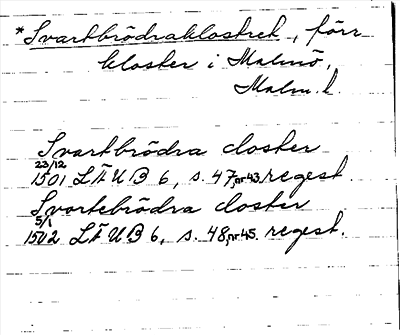 *Svartbrödraklostret, förr
kloster i Malmö,
Malm. k.
Svartbrödra closter
23/12
1501 LÄUB 6, s. 47, nr 43. regest.
Svortebrödra closter
5/1
1502 LÄUB 6, s. 48, nr. 45. regest.